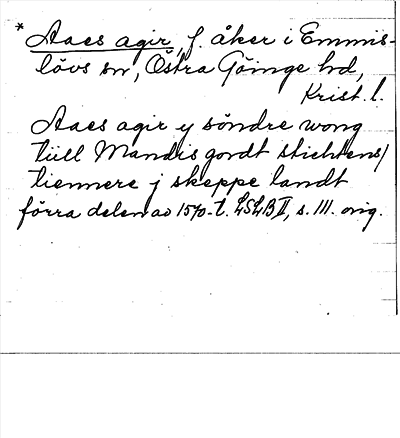 * Aaes agir, f. åker i Emmis-
lövs sn, Östra Göinge hd,
Krist. l.
Aaes agir y söndre wong
tiill Mandis gordt stichtens/
tiennere j skeppe landt
förra delen av 1570-t. LSLB II, s. 111. orig.